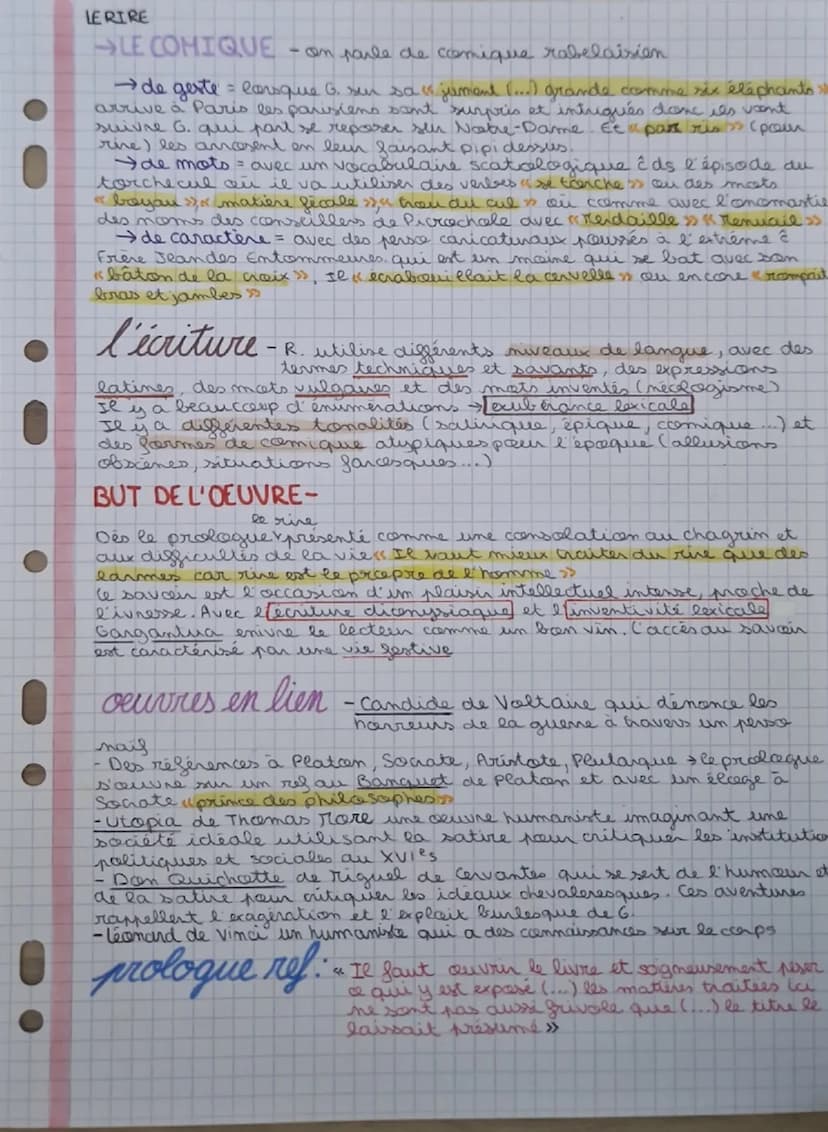 LE RIRE
→ LE COMIQUE - on parle de comique rabelaisien
→ de geste = lorsque G. sur sa « jument (...) grande comme six éléphants »
arrive à Paris les parisiens sont surpris et intrigués donc ils vont
suivre G. qui part se reposer sur Notre-Dame. Et « par ris » (pour
rire) les arrosent en leur faisant pipi dessus.
→ de mots = avec un vocabulaire scatologique ĉ ds l'épisode du
torchecul où il va utiliser des verbes « se torche » ou des mots
« boyau » « matière fécale », « trou du cul » où comme avec l'onomastie
des noms des conseillers de Picrochole avec « Merdaille » « Menuail »
→ de caractère = avec des perso caricaturaux poussés à l'extrême ĉ
Frère Jean des Entommeures qui est un moine qui se bat avec son
« bâton de la croix », Il « écrabouillait la cervelle » ou encore « rompait
bras et jambes »
l'écriture - R. utilise différents niveaux de langue, avec des
termes techniques et savants, des expressions
latines, des mots vulgaires et des mots inventés (néologisme)
Il y a beaucoup d'énumérations → exubérance lexicale
Il y a différentes tonalités (satirique, épique, comique ...) et
des formes de comique atypiques pour l'époque (allusions
obscènes, situations farcesques...)
BUT DE L'OEUVRE-
le rire
Dès le prologue présenté comme une consolation au chagrin et
aux difficultés de la vie « Il vaut mieux traiter du rire que des
larmes car rire est le propre de l'homme »
Le savoir est l'occasion d'un plaisir intellectuel intense, proche de
l'ivresse. Avec l'écriture dionysiaque et l'inventivité lexicale
Gargantua enivre le lecteur comme un bon vin. L'accès au savoir
est caractérisé par une vie festive
oeuvres en lien - Candide de Voltaire qui dénonce les
horreurs de la guerre à travers un perso
naïf
- Des références à Platon, Socrate, Aristote, Plutarque → le prologue
s'ouvre sur un ref au Banquet de Platon et avec un éloge à
Socrate « prince des philosophes »
- Utopia de Thomas More une oeuvre humaniste imaginant une
société idéale utilisant la satire pour critiquer les institutio
politiques et sociales au XVIes
- Don Quichotte de Miguel de Cervantes qui se sert de l'humour et
de la satire pour critiquer les idéaux chevaleresques. Ces aventures
rappellent l'exagération et l'exploit burlesque de G.
- Léonard de Vinci un humaniste qui a des connaissances sur le corps
prologue ref : « Il faut ouvrir le livre et soigneusement peser
ce qui y est exposé (...) les matières traitées ici
ne sont pas aussi frivole que (...) le titre le
laissait présumé »